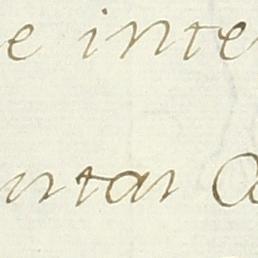 e inte
untar a